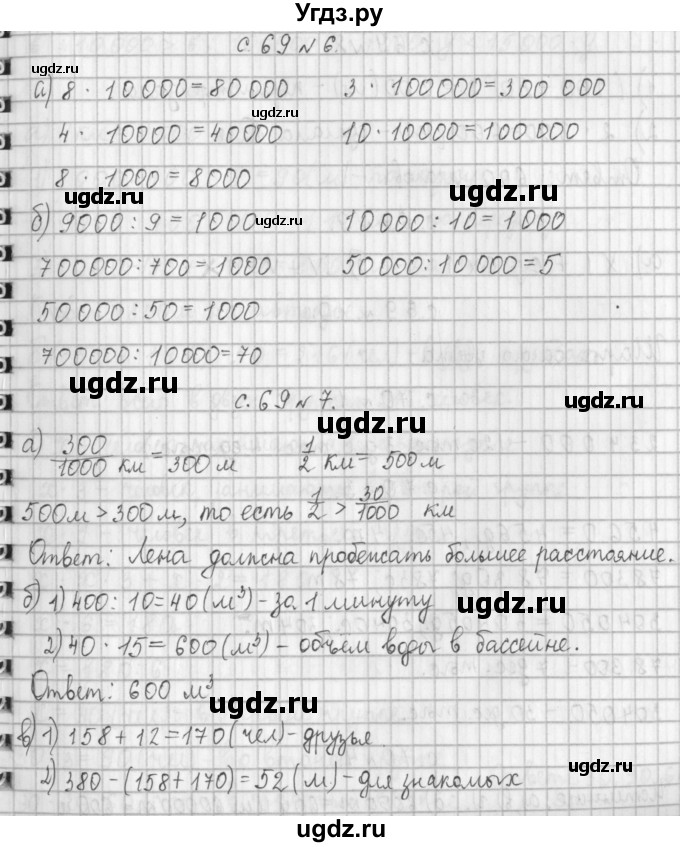 Угдз.ру
с. 69 № 6.
ugdz.ru
а) 8 · 10 000 = 80 000 3 · 100000 = 300 000
ugdz.ru
4 · 10000 = 40000 10 · 10000 = 100 000
8 · 1000 = 8000
ugdz.ru ugdz.ru
б) 9000 : 9 = 1000 ugdz.ru 10 000 : 10 = 1000
700000 : 700 = 1000 50 000 : 10 000 = 5
50 000 : 50 = 1000
700000 : 10000 = 70
ugdz.ru
с. 69 № 7.
ugdz.ru
а) 300/1000 км = 300 м 1/2 км = 500 м
500 м > 300 м, то есть 1/2 > 30/1000 км
Ответ: Лена должна пробежать большее расстояние.
б) 1) 400 : 10 = 40 (м³) - за 1 минуту
ugdz.ru
2) 40 · 15 = 600 (м³) - объем воды в бассейне.
Ответ: 600 м³
ugdz.ru
в) 1) 158 + 12 = 170 (чел) - друзья
ugdz.ru
2) 380 - (158 + 170) = 52 (м) - для знакомых
ugdz.ru
ugdz.ru